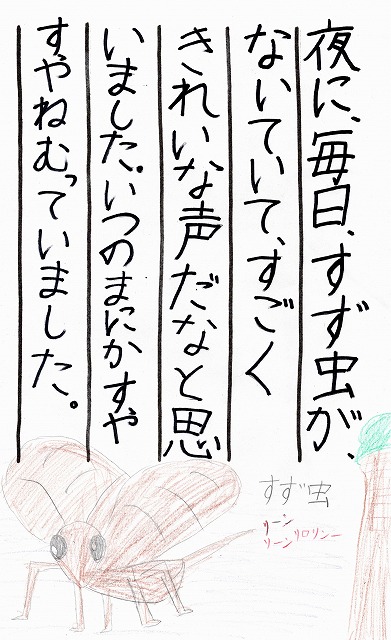 夜に、毎日、すず虫が、
ないていて、すごく
きれいな声だなと思
いました。いつのまにかすや
すやねむっていました。
すず虫
リーン
リーンリロリンー